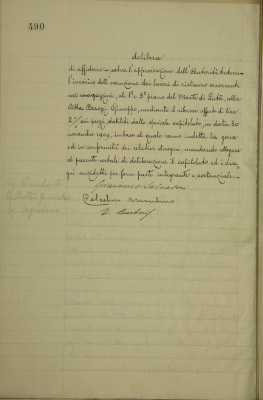 490
delibera
di affidare - salva l'approvazione dell'Autorità tutoria -
l'incarico dell'esecuzione dei lavori di ristauro occorrenti
nei magazzini, al 1° e 2° piano del Monte di Pietà, alla
Ditta Giuseppe, mediante il ribasso offerto di lire
2% sui prezzi stabiliti dallo speciale capitolato, in data 30
novembre 1904, in base al quale venne indetta la gara
ed in conformità dei relativi disegni, mandando allegare
al presente verbale di deliberazione il capitolato ed i dise-
gni anzidetti per farne parte integrante e sostanziale.
Il Presidente
Il Segretario
Celestino